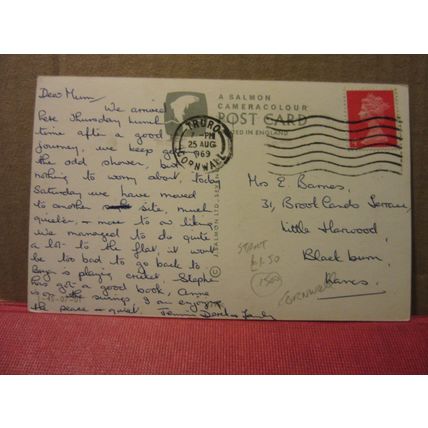 Dear Mum,
We arrived
here Thursday lunch
time after a good
journey, we keep getting
the odd shower, but
nothing to worry about, today
Saturday we have moved
to another site, much
quieter & more to our liking
we managed to do quite
a lot to the flat, it won't
be too bad to go back to
is playing cricket, Stephen
has got a good book, Anne
is on the swings, I am enjoying
the peace & quiet.
Doris & Family
A SALMON
CAMERACOLOUR
POST CARD
PRINTED IN ENGLAND
© J. SALMON LTD. SEVENOAKS
TRURO
7-PM
25 AUG
1969
CORNWALL
Mrs E. Barnes,
31, Brooklands Terrace,
Little Harwood,
Blackburn,
Lancs.
START
£1.50
CORNWALL